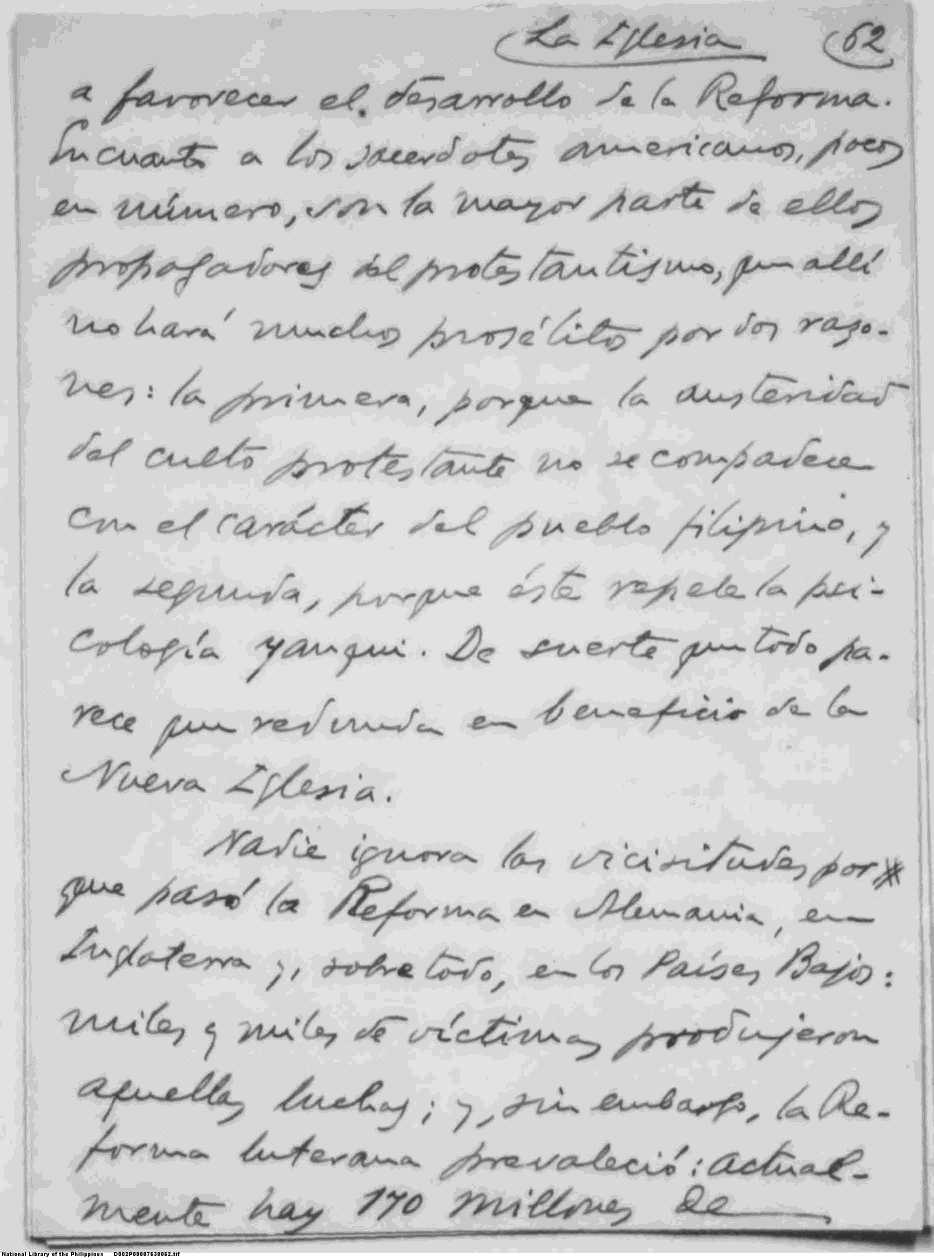 La Iglesia 62
a favorecer el desarrollo de la Reforma.
En cuanto a los sacerdotes americanos, pocos
en número, son la mayor parte de ellos
propagadores del protestantismo, que allí
no hará muchos prosélitos por dos razo-
nes: la primera, porque la austeridad
del culto protestante no se compadece
con el carácter del pueblo filipino, y
la segunda, porque éste repele la psi-
cología yanqui. De suerte que todo pa-
rece que redunda en beneficio de la
Nueva Iglesia.
Nadie ignora las vicisitudes por
que pasó la Reforma en Alemania, en
Inglaterra y, sobre todo, en los Países Bajos:
miles y miles de víctimas produjeron
aquellas luchas; y, sin embargo, la Re-
forma luterana prevaleció: actual-
mente hay 170 millones de
National Library of the Philippines D002P00007630062.tif